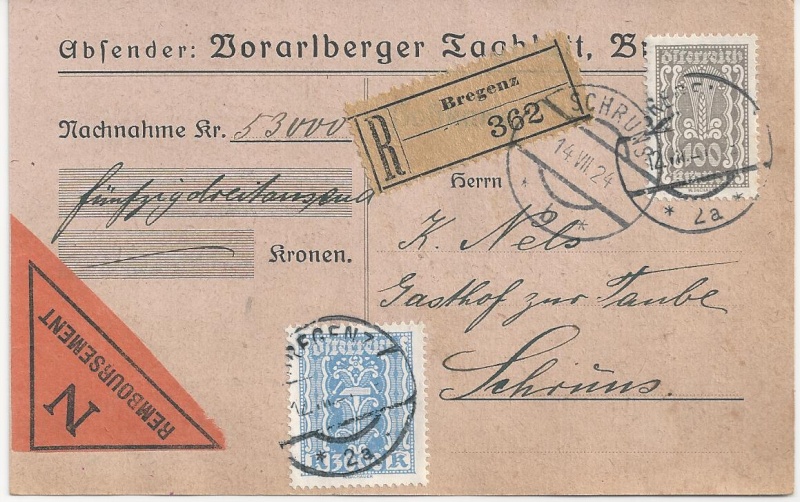 Absender: Vorarlberger Tagblatt,
Bregenz
R
362
Nachnahme Kr. 53000
fünfzigdreitausend
Kronen.
Herrn
K. Nels
Gasthof zur Taube
Schruns.
SCHRUNS
14.VII.24
* b *
Österreich
100
* 2a *
BREGENZ
12.
Österreich
* 2a
K
REMBOURSEMENT
N